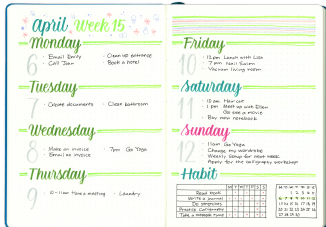 april Week 15
Monday
6
• Email Emily
• Call Jenn
• Clean up entrance
• Book a hotel
Tuesday
7
• Create documents
• Clean bathroom
Wednesday
8
• Make an invoice
Email an invoice
• 7pm Go Yoga
Thursday
9
• 10-11am Have a meeting
• Laundry
Friday
10
• 12pm Lunch with Lisa
• 7pm Nail Salon
Vacuum living room
Saturday
11
• 10am Hair cut
• 1pm Meet up with Ellen
Go see a movie
• Buy new notebook
Sunday
12
11am Go Yoga
Change my wardrobe
Weekly Setup for next week
Apply for the calligraphy workshop
Habit
M T W T F S S
Read book
Write a journal
Do stretches
Practice Calligraphy
Take a mobile time
M T W T F S S
1 2 3 4 5
6 7 8 9 10 11 12
13 14 15 16 17 18 19
20 21 22 23 24 25 26
27 28 29 30